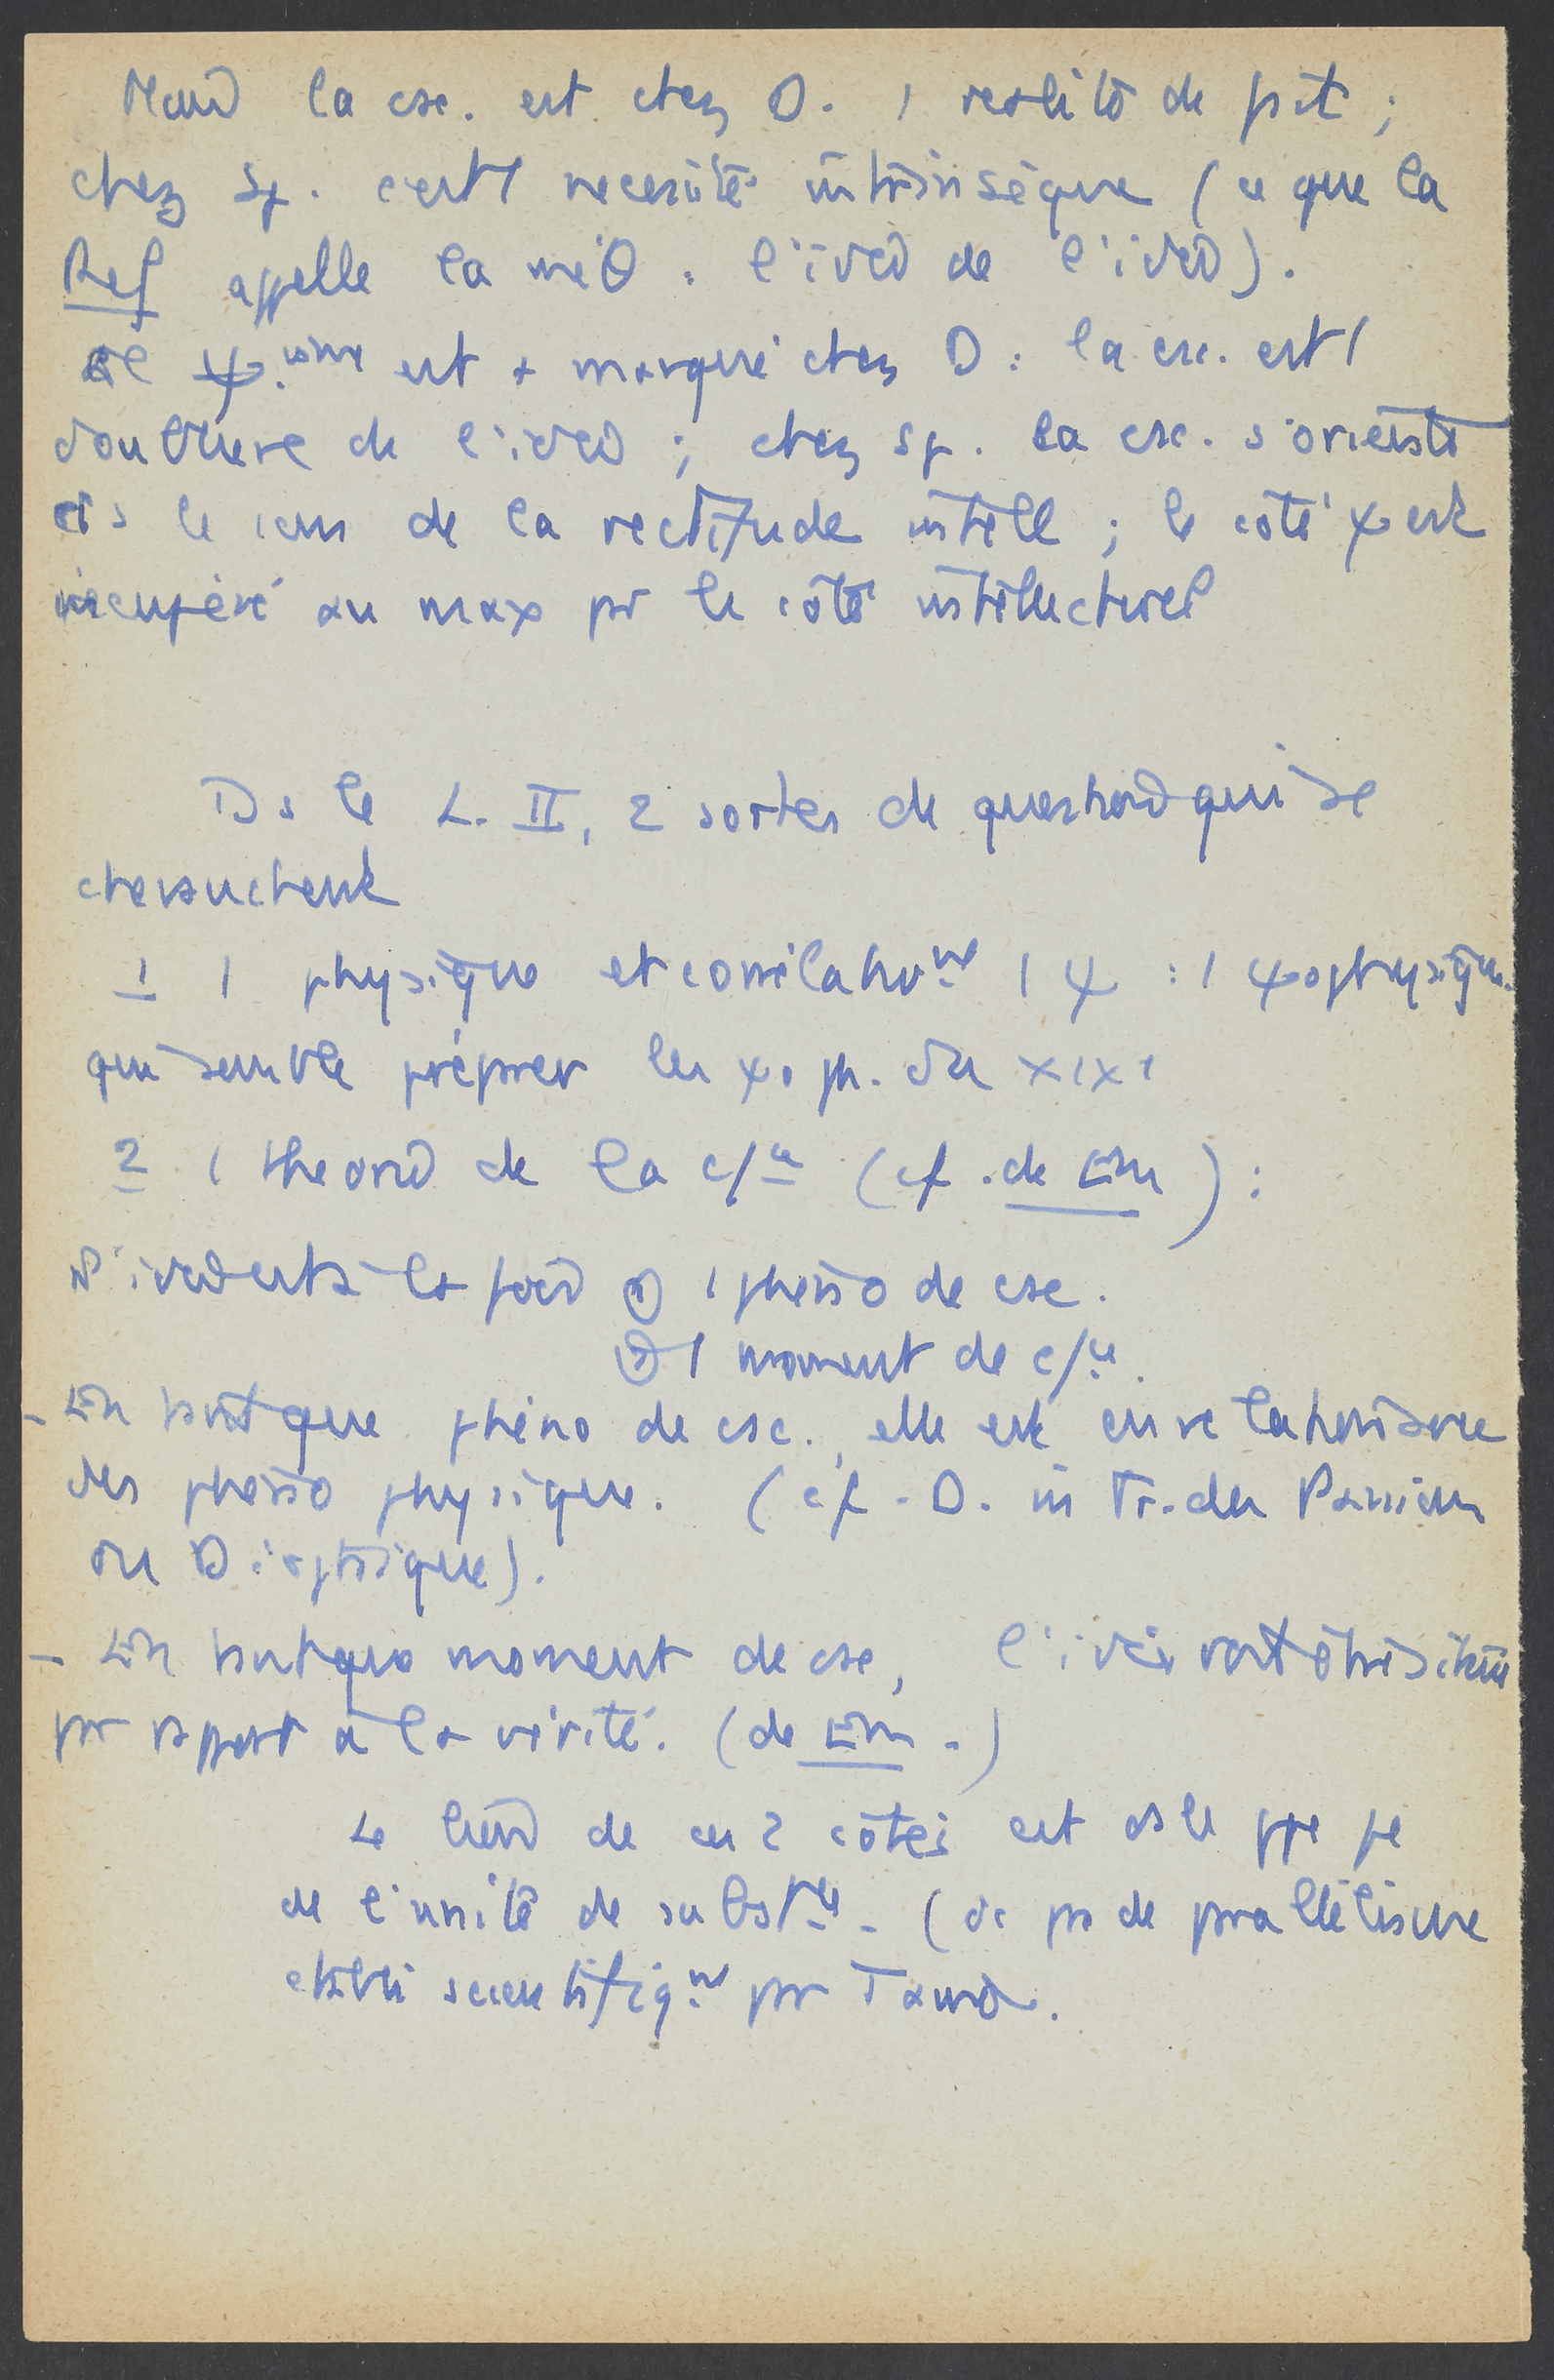 Mais la csc. est chez D. 1 réalité de fait ;
chez Sp. c'est 1 nécessité intrinsèque (ce que la
Ref appelle la méθ : l'idée de l'idée).
Le ψ.isme est + marqué chez D : la csc. est 1
doublure de l'idée ; chez Sp. la csc. s'oriente
ds le sens de la rectitude intell ; le côté ψ est
récupéré au max pr le côté intellectuel
Ds le L. II, 2 sortes de questions qui se
chevauchent
1 1 physique et corrélative 1 ψ : 1 ψophysique
qui semble préparer les ψoph. du XIXe
2 1 théorie de la c/ce (cf. de Em) :
L'idée est à la fois ① 1 phéno de csc.
② 1 moment de c/ce.
- En tant que phéno de csc., elle est en relation avec
des phéno physique. (cf. D. in Tr. des Passions
ou Dioptrique).
- En tant que moment de csc, l'idée va être située
pr rapport à la vérité. (de Em.)
Le lien de ces 2 côtés est ds le ppe
de l'unité de subst.ce. (dc pas de parallélisme
établi scientifiq.nt par